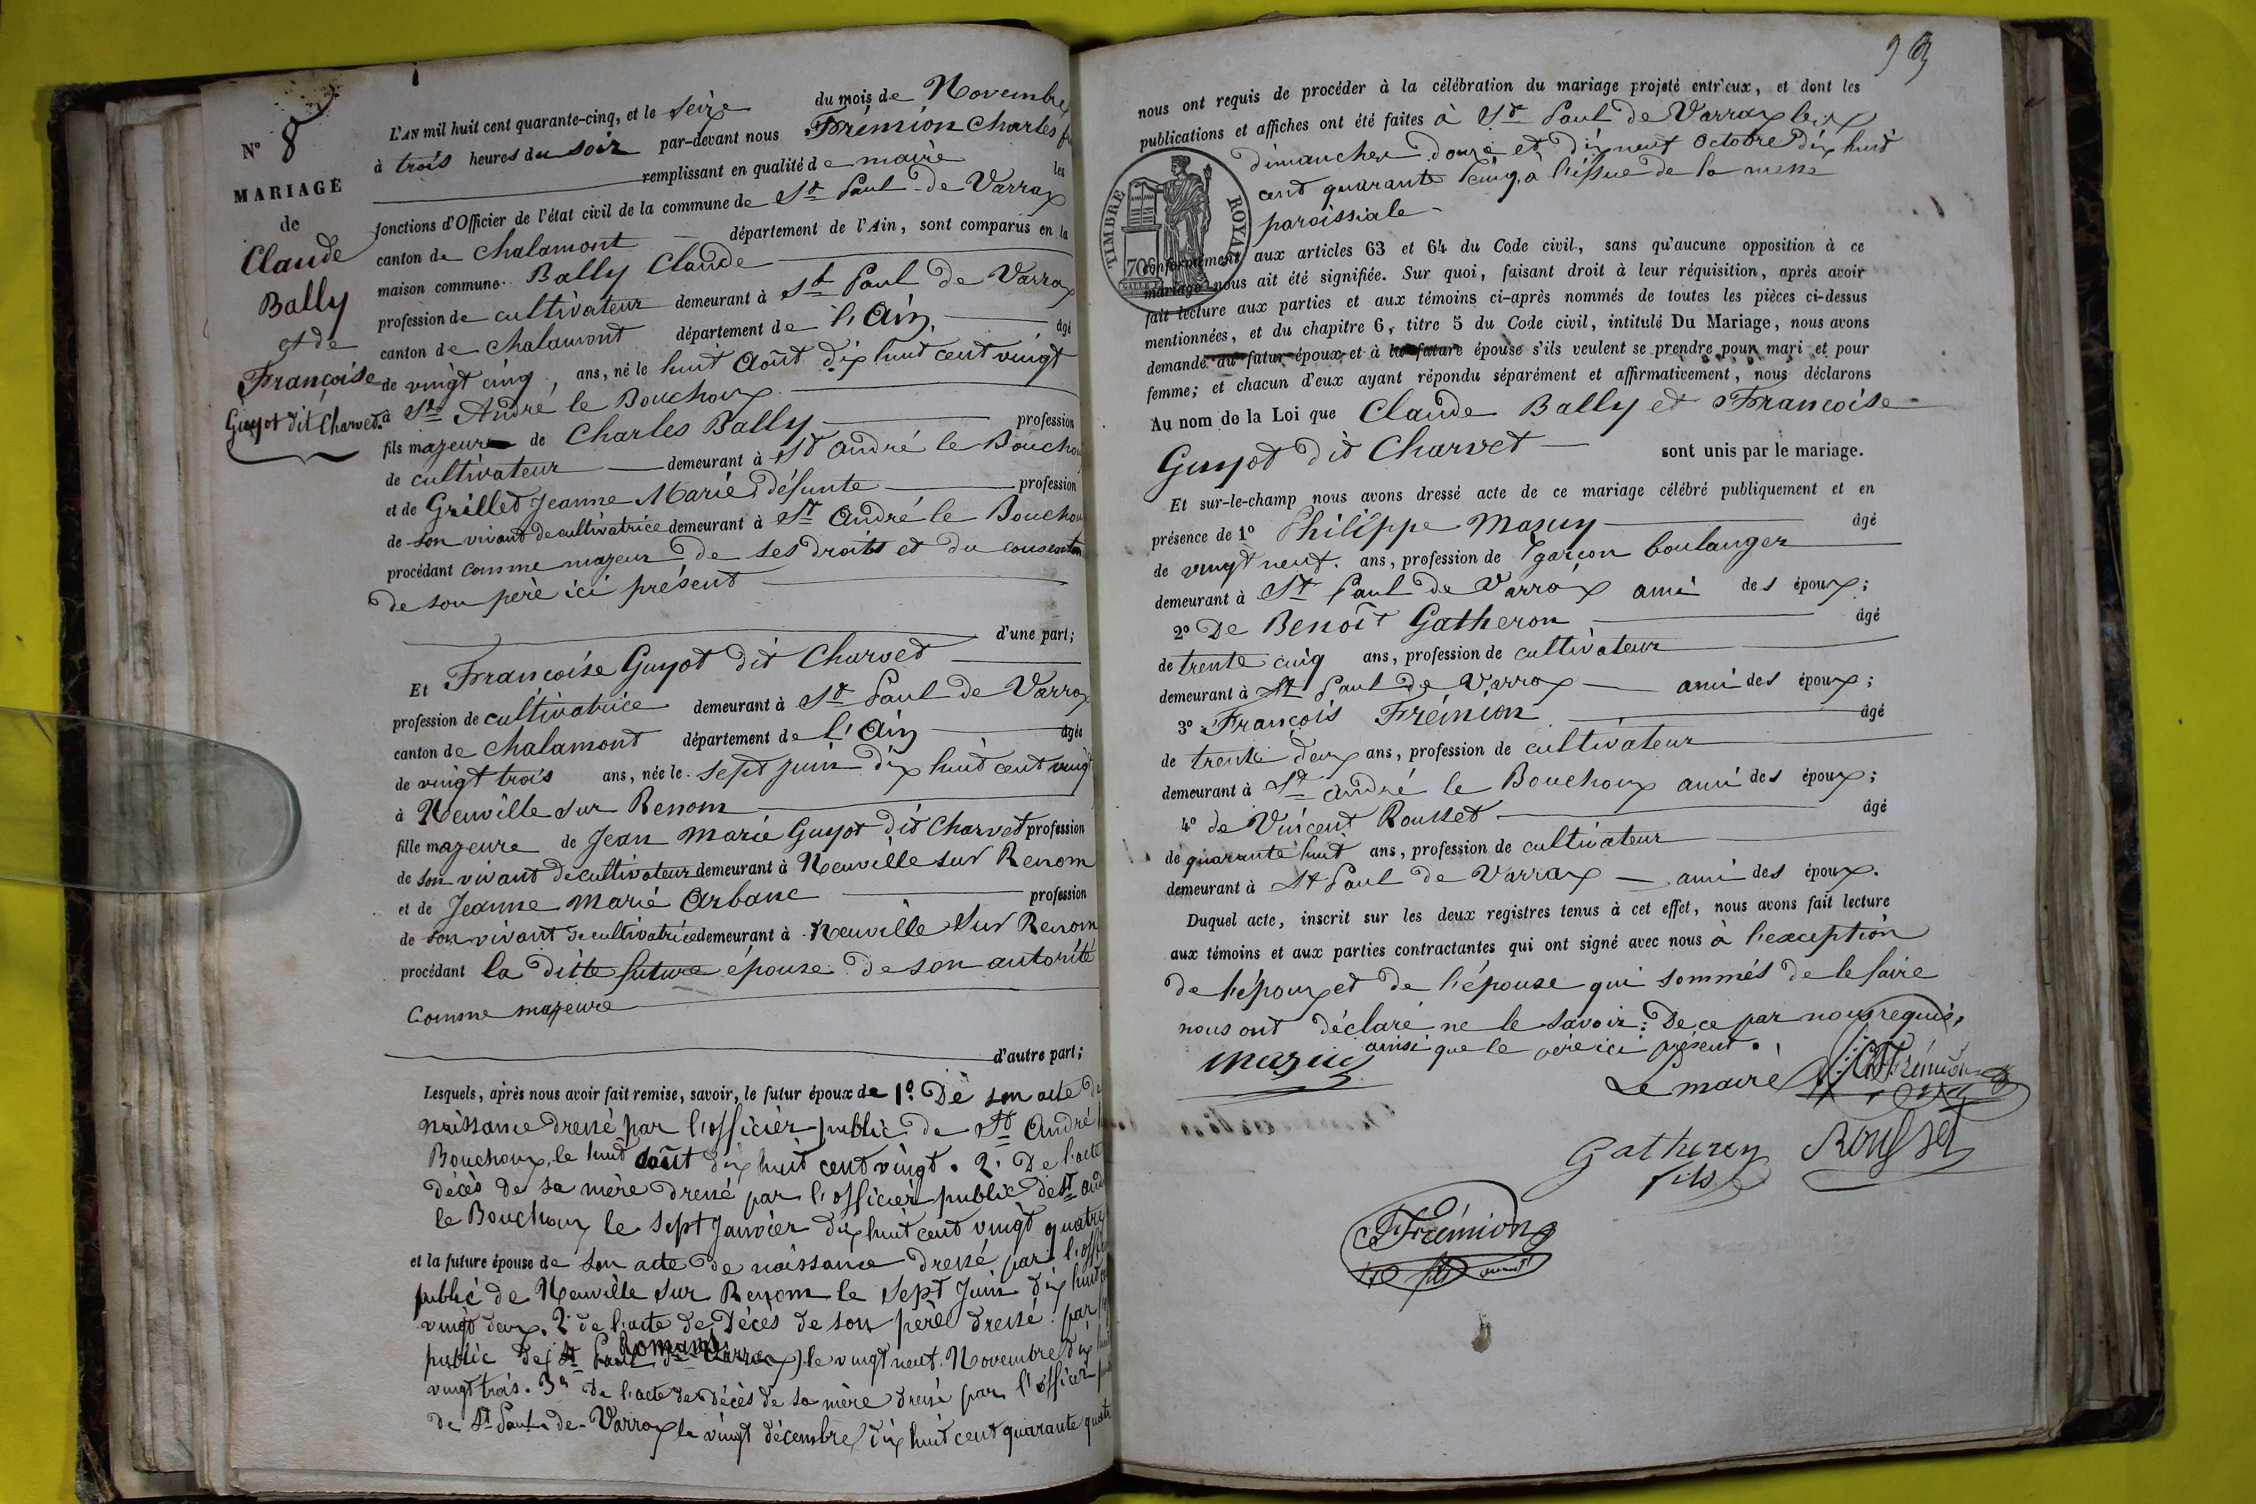 N° 8
MARIAGE
de
Claude
Bally
et de
Françoise
Guyot dit Charvet.
L'AN mil huit cent quarante-cinq, et le seize du mois de Novembre
à trois heures du soir par-devant nous Frémion Charles
remplissant en qualité de maire les
fonctions d'Officier de l'état civil de la commune de St Paul de Varrax
canton de Chalamont département de l'Ain, sont comparus en la
maison commune. Bally Claude
profession de cultivateur demeurant à St Paul de Varrax
canton de Chalamont département de l'Ain, âgé
de vingt cinq, ans, né le huit Août dix huit cent vingt
à St André le Bouchoux
fils majeur de Charles Bally profession
de cultivateur demeurant à St André le Bouchoux
et de Grillet Jeanne Marie, défunte profession
de son vivant de cultivatrice demeurant à St André le Bouchoux
procédant comme majeur de ses droits et du consentem
de son père ici présent
d'une part;
Et Françoise Guyot dit Charvet
profession de cultivatrice demeurant à St Paul de Varrax
canton de Chalamont département de l'Ain âgée
de vingt trois ans, née le sept juin dix huit cent vingt
à Neuville sur Renom
fille majeure de Jean Marie Guyot dit Charvet profession
de son vivant de cultivateur demeurant à Neuville sur Renom
et de Jeanne Marie Arbanc profession
de son vivant de cultivatrice demeurant à Neuville sur Renom
procédant la ditte future épouse de son autorité
Comme majeure
d'autre part;
Lesquels, après nous avoir fait remise, savoir, le futur époux de 1° De son acte de
naissance dressé par l'officier public de St André
Bouchoux, le huit août dix huit cent vingt. 2° De l'acte
décès de sa mère dressé par l'officier public de St andré
le Bouchoux le sept Janvier dix huit cent vingt quatre
et la future épouse de son acte de naissance dressé par l'officier
public de Neuville sur Renom le sept Juin dix huit cent
vingt deux. 2° de l'acte de Décès de son père dressé par
public de St Paul de Varrax Romans le vingt neuf Novembre dix huit
vingt trois. 3° De l'acte de décès de sa mère dressé par l'officier
de St Paul de Varrax le vingt décembre dix huit cent quarante quatre
93
nous ont requis de procéder à la célébration du mariage projeté entr'eux, et dont les
publications et affiches ont été faites à St Paul de Varrax les
dimanches douze et dix neuf Octobre dix huit
cent quarante cinq, à l'issue de la messe
paroissiale
TIMBRE ROYAL
70C
conformément aux articles 63 et 64 du Code civil, sans qu'aucune opposition à ce
mariage nous ait été signifiée. Sur quoi, faisant droit à leur réquisition, après avoir
fait lecture aux parties et aux témoins ci-après nommés de toutes les pièces ci-dessus
mentionnées, et du chapitre 6, titre 5 du Code civil, intitulé Du Mariage, nous avons
demandé au futur époux et à la future épouse s'ils veulent se prendre pour mari et pour
femme; et chacun d'eux ayant répondu séparément et affirmativement, nous déclarons
Au nom de la Loi que Claude Bally et Françoise
Guyot dit Charvet sont unis par le mariage.
Et sur-le-champ nous avons dressé acte de ce mariage célébré publiquement et en
présence de 1° Philippe Mazuy âgé
de vingt neuf. ans, profession de garçon boulanger
demeurant à St Paul de Varrax ami des époux;
2° De Benoît Gatheron âgé
de trente cinq ans, profession de cultivateur
demeurant à St Paul de Varrax ami des époux;
3° François Frémion âgé
de trente deux ans, profession de cultivateur
demeurant à St André le Bouchoux ami des époux;
4° de Vincent Rousset âgé
de quarante huit ans, profession de cultivateur
demeurant à St Paul de Varrax ami des époux.
Duquel acte, inscrit sur les deux registres tenus à cet effet, nous avons fait lecture
aux témoins et aux parties contractantes qui ont signé avec nous à l'exception
de l'époux et de l'épouse qui sommés de le faire
nous ont déclaré ne le savoir: De ce par nous requis,
ainsi que le père ici présent.
Mazuy
Le maire Ch Frémion
Gatheron
fils
Rousset
Frémion